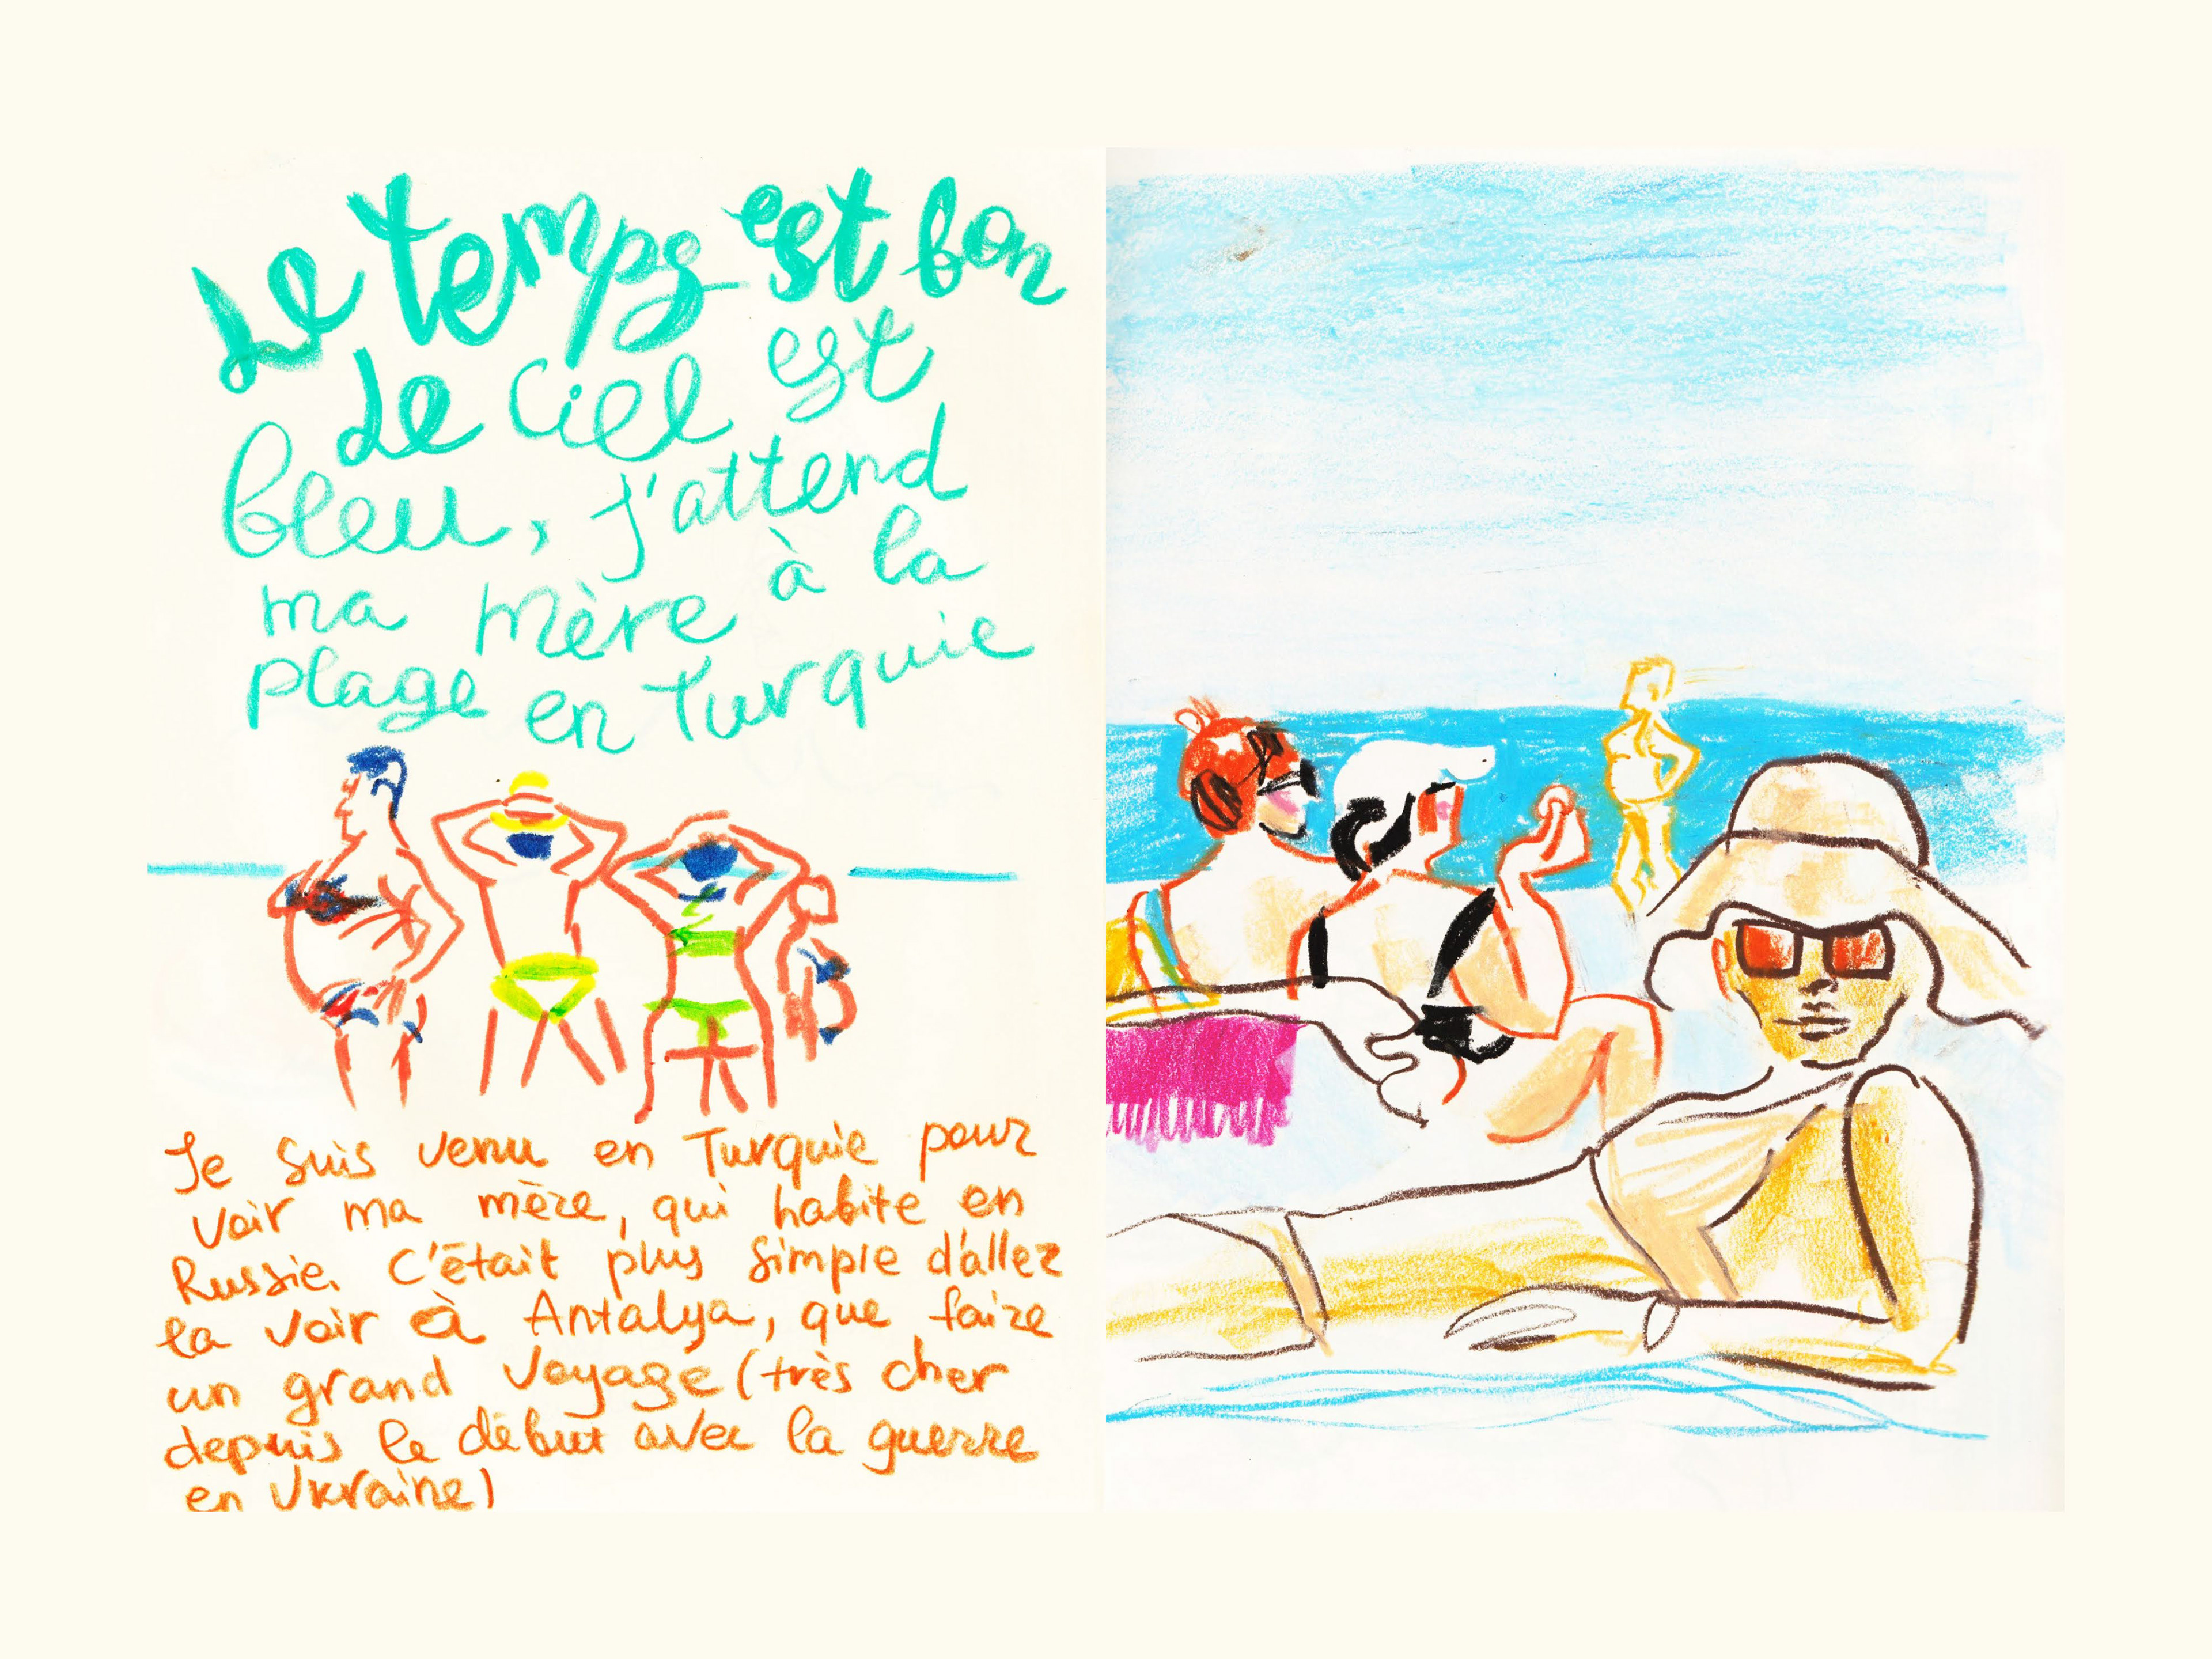 Le temps est bon
Le ciel est
bleu, j'attend
ma mère à la
plage en Turquie
Je suis venu en Turquie pour
voir ma mère, qui habite en
Russie. C'était plus simple d'aller
la voir à Antalya, que faire
un grand voyage (très cher
depuis le début avec la guerre
en Ukraine)